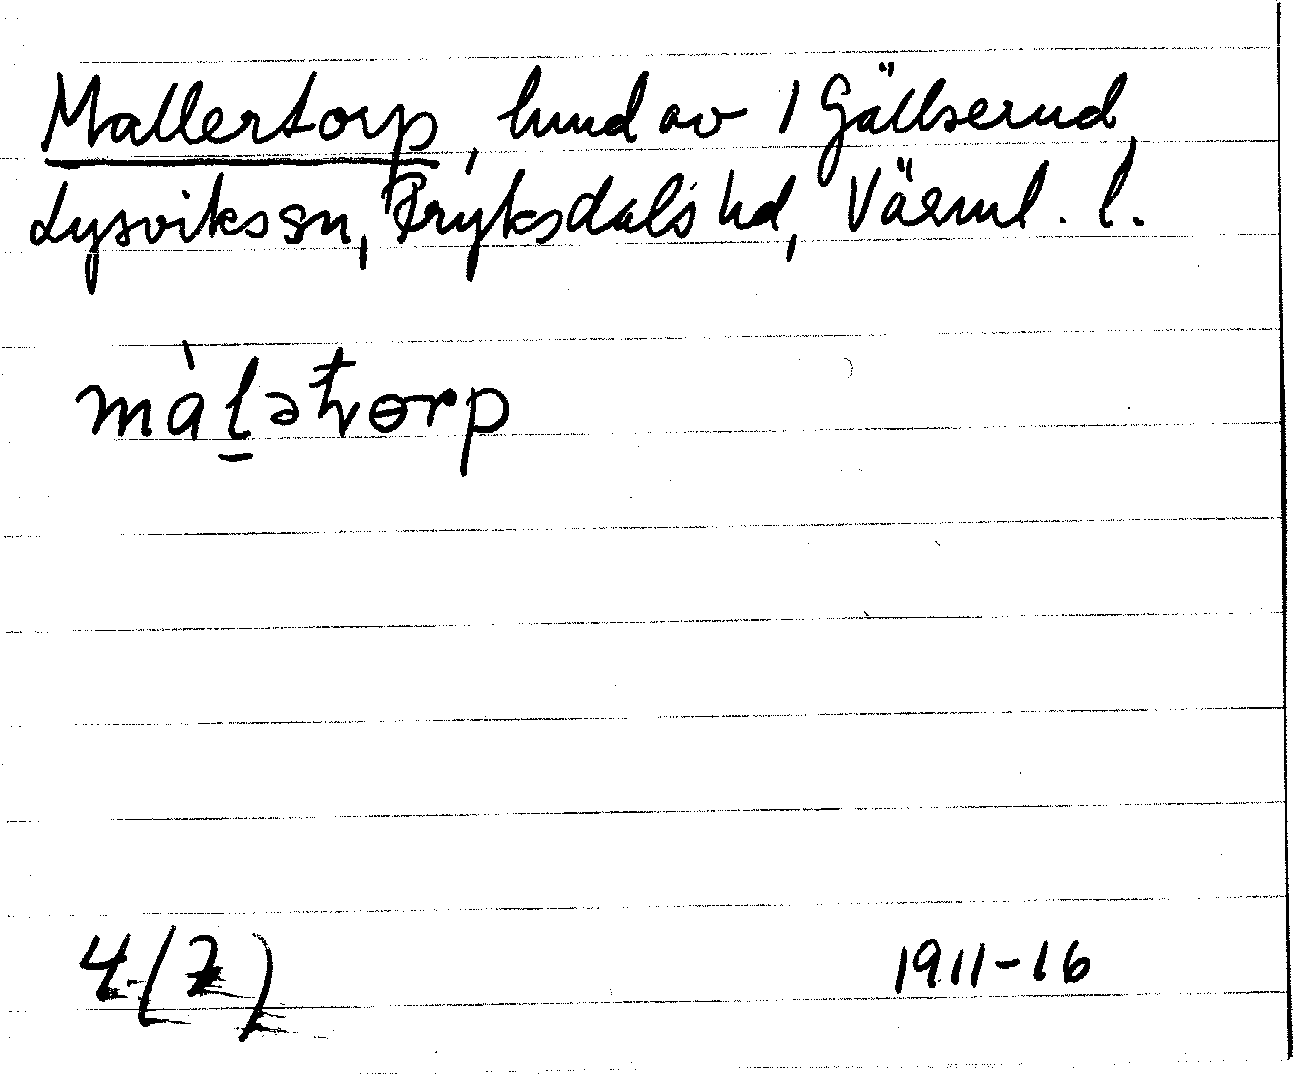 Mallertorp, hmd av 1 Gällserud,
Lysviks sn, Fryksdals hd, Värml. l.
màl̠ətorp
4 (7)
1911-16